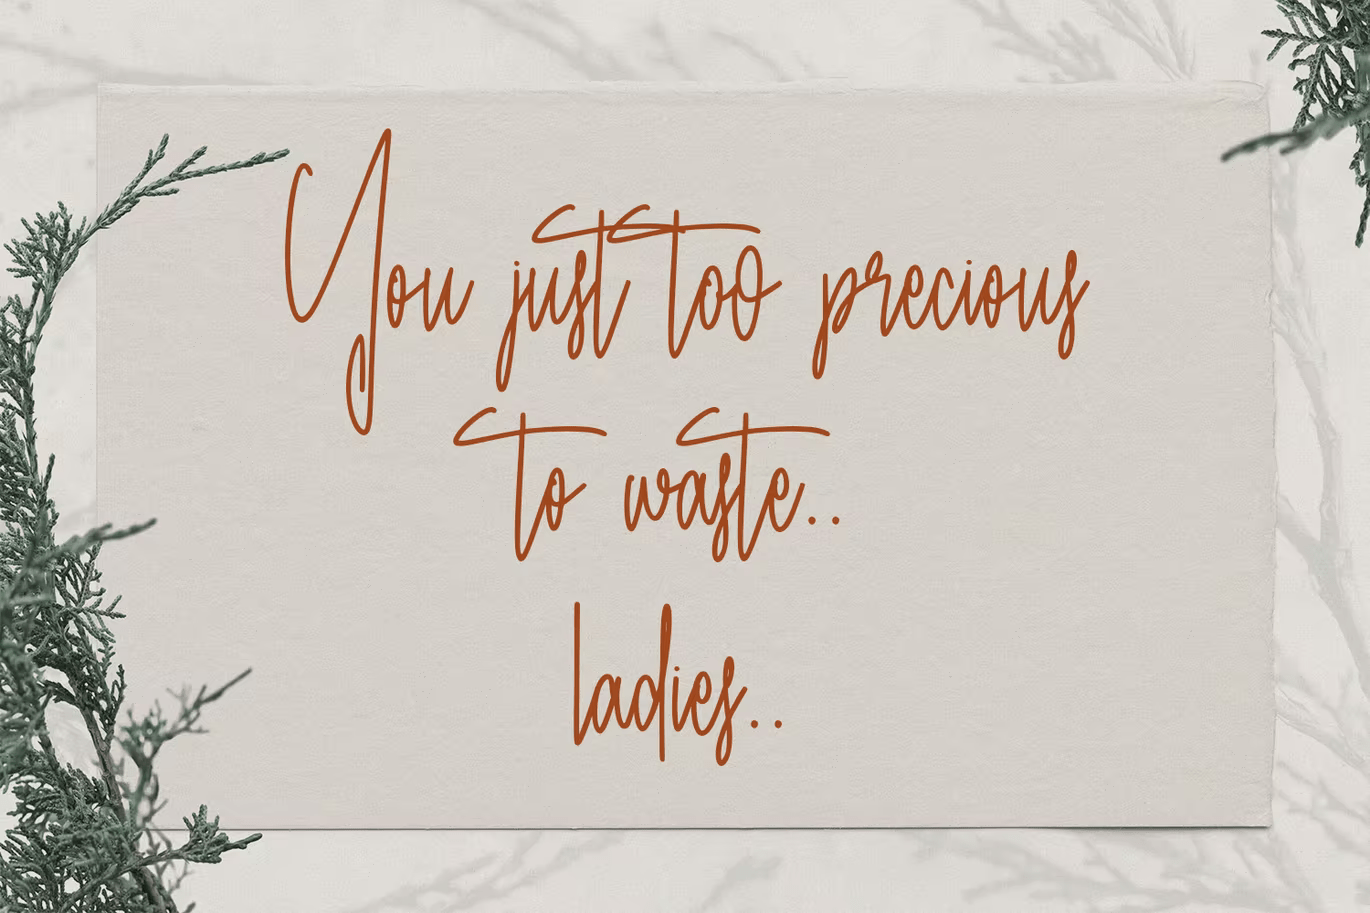 You just too precious
to waste..
ladies..